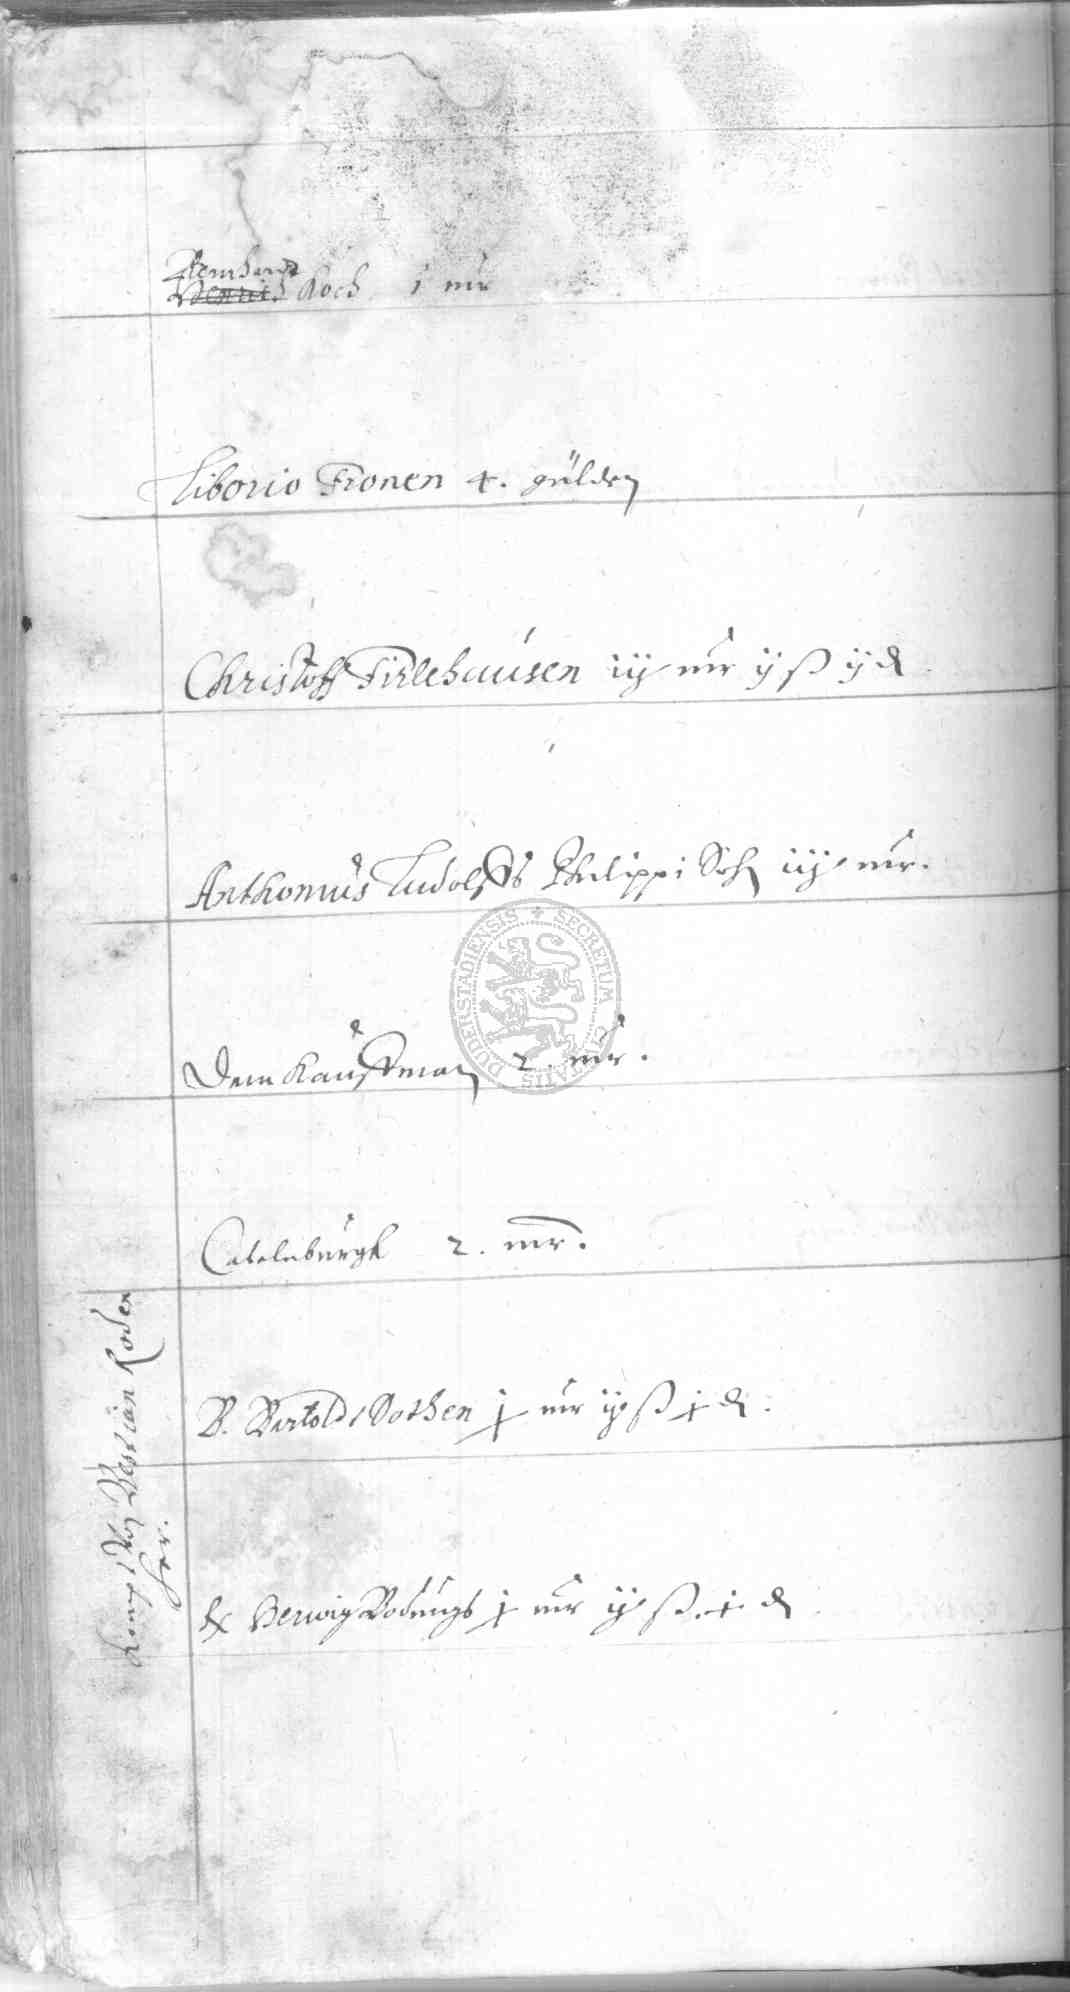 Reinhardt
Henrich Koch 1 mr
Liborio Fronen 4. gülden
Christoff Firlehausen iij mr ij ß ij d
Anthonius Ludolffs Philippi Sohn iij mr.
Dem Kauffman 2 mr.
Catelnburgk 2. mr.
B. Bartold Dothen j mr ij ß j d.
Herwig Bodungs j mr ij ß j d
Kompt von Bestian Koden
her.
SECRETUM CIVITATIS DUDERSTADIENSIS